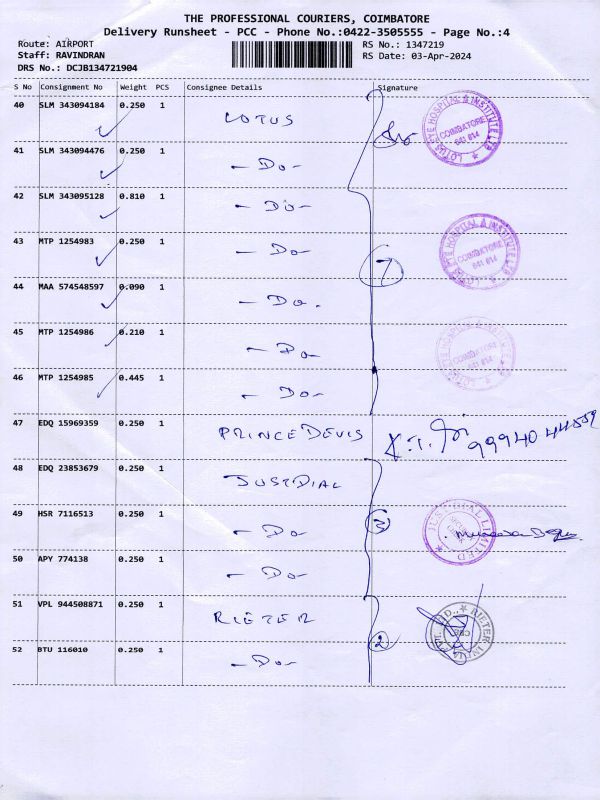 THE PROFESSIONAL COURIERS, COIMBATORE
Delivery Runsheet - PCC - Phone No.:0422-3505555 - Page No.:4
Route: AIRPORT
RS No.: 1347219
Staff: RAVINDRAN
RS Date: 03-Apr-2024
DRS No.: DCJB134721904
S No Consignment No Weight PCS Consignee Details Signature
40 SLM 343094184 0.250 1 LOTUS
LOTUS EYE HOSPITAL & INSTITUTE LTD COIMBATORE 641 014
41 SLM 343094476 0.250 1 - Do -
42 SLM 343095128 0.810 1 - Do -
43 MTP 1254983 0.250 1 - Do -
LOTUS EYE HOSPITAL & INSTITUTE LTD COIMBATORE 641 014
7
44 MAA 574548597 0.090 1 - Do.
45 MTP 1254986 0.210 1 - Do -
LOTUS EYE HOSPITAL & INSTITUTE LTD COIMBATORE 641 014
46 MTP 1254985 0.445 1 - Do -
47 EDQ 15969359 0.250 1 PRINCE DEVIS
48 EDQ 23853679 0.250 1 JUSTDIAL
49 HSR 7116513 0.250 1 - Do -
3
50 APY 774138 0.250 1 - Do -
51 VPL 944508871 0.250 1 RIETER
2
52 BTU 116010 0.250 1 - Do -